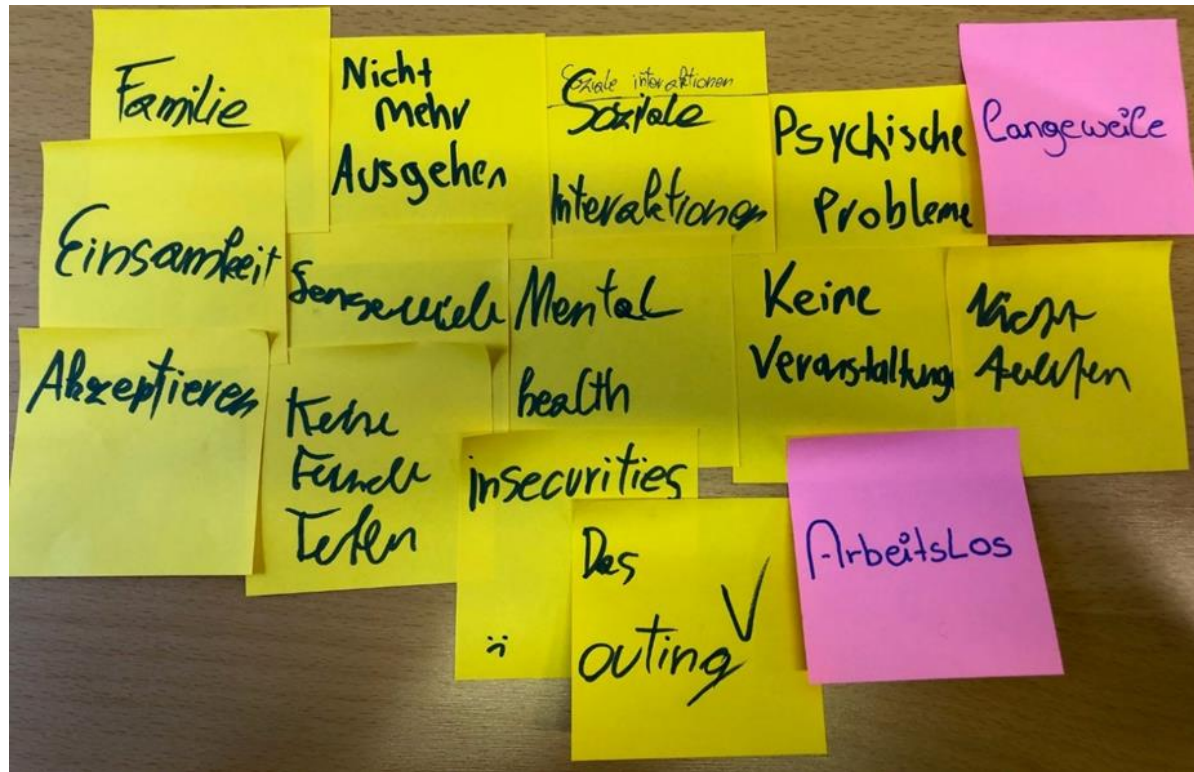 Familie
Nicht
Mehr
Ausgehen
Soziale interaktionen
Soziale
Interaktionen
Psychische
Probleme
Langeweile
Einsamkeit
Mental
health
Keine
Veranstaltung
Nicht
Akzeptieren
Keine
insecurities
:(
Das
outing
ArbeitsLos